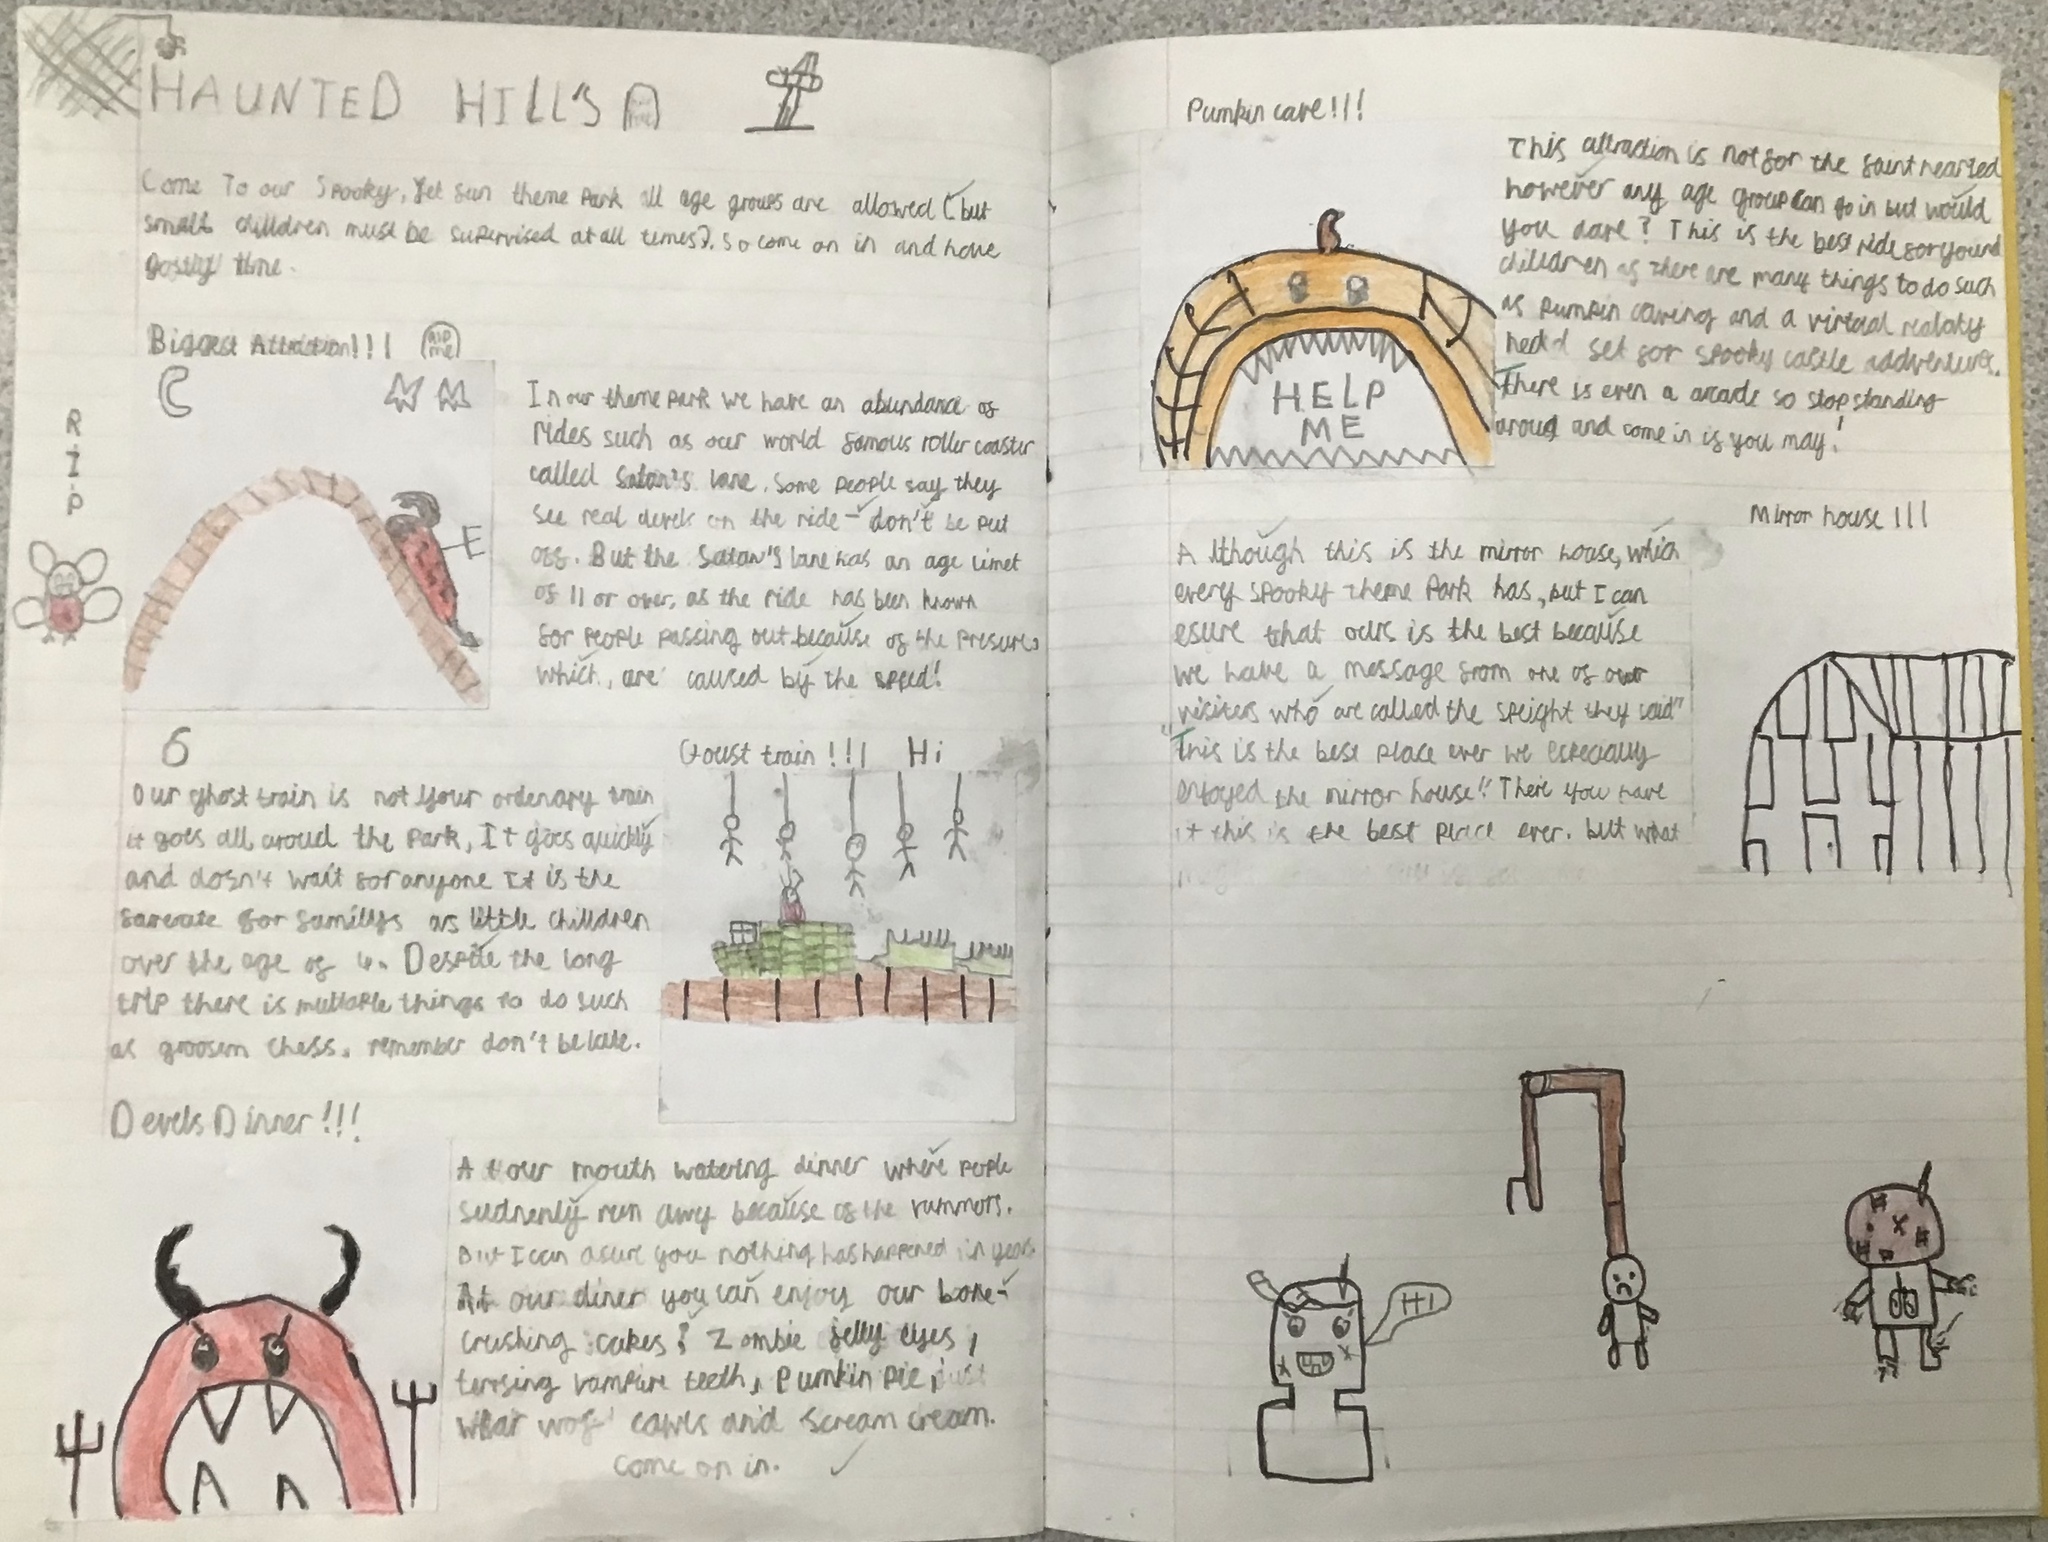 HAUNTED HILL'S
Come To our Spooky, Yet fun theme Park all age groups are allowed (but
small chilldren must be supervised at all times). So come on in and have
gostly time.
Biggest Attraction!!!
RIP
me
R.I.P
In our theme park we have an abundance of
rides such as our world famous roller coaster
called Satan's lane. Some people say they
see real devels on the ride - don't be put
off. But the Satan's lane has an age limet
of 11 or over, as the ride has been known
for people passing out because of the presure,
which, are caused by the speed!
E
Goust train !!! Hi
6
Our ghost train is not your ordenary train
it goes all aroud the park, It goes quickly
and dosn't wait for anyone It is the
farerate for familys as little chilldren
over the age of 4. Despite the long
trip there is multaple things to do such
as groosem chess. remember don't be late.
Devels Dinner!!!
At our mouth watering dinner where peple
sudnenly run away because of the rummors.
But I can asure you nothing has happened in years.
At our diner you can enjoy our bone-
crushing cakes; Zombie jelly eyes,
terfing vampire teeth, Pumkin pie, just
what wolf cawls and scream cream.
Come on in.
Pumkin cave!!!
HELP
ME
This attraction is not for the faint hearted
however any age group can go in but would
you dare? This is the best ride for yound
chilldren as there are many things to do such
as pumpin caving and a virtual realaty
hedd set for spooky castle addventures.
There is even a arcade so stop standing
aroud and come in if you may!
Mirror house!!!
Although this is the mirror house, which
every spooky theme Park has, but I can
esure that ours is the best because
we have a message from one of our
visiters who are called the speight they said"
"This is the best place ever we especially
enjoyed the mirror house". There you have
it this is the best place ever. but what
HI